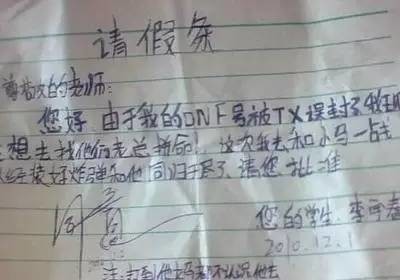 请假条
尊敬的老师:
您好 由于我的DNF号被TX误封了 我现
想去找他们老总拼命! 这次我去和小马一战
经装好炸弹和他同归于尽了 请您批准
同意
您的学生:李
2010.12.1
注:封到他妈都不认识他去